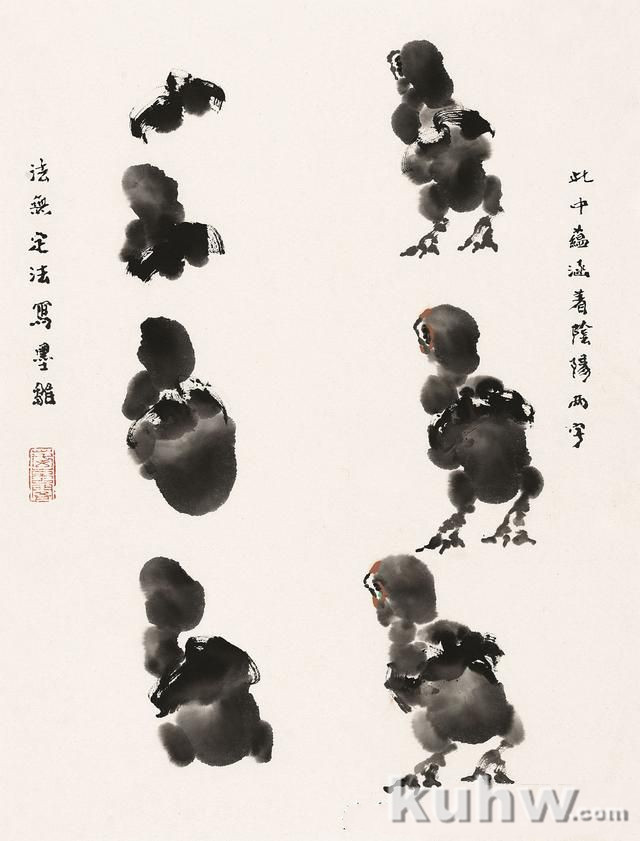 此中蘊涵着陰陽兩字
法無定法寫墨雛
kuhw.com